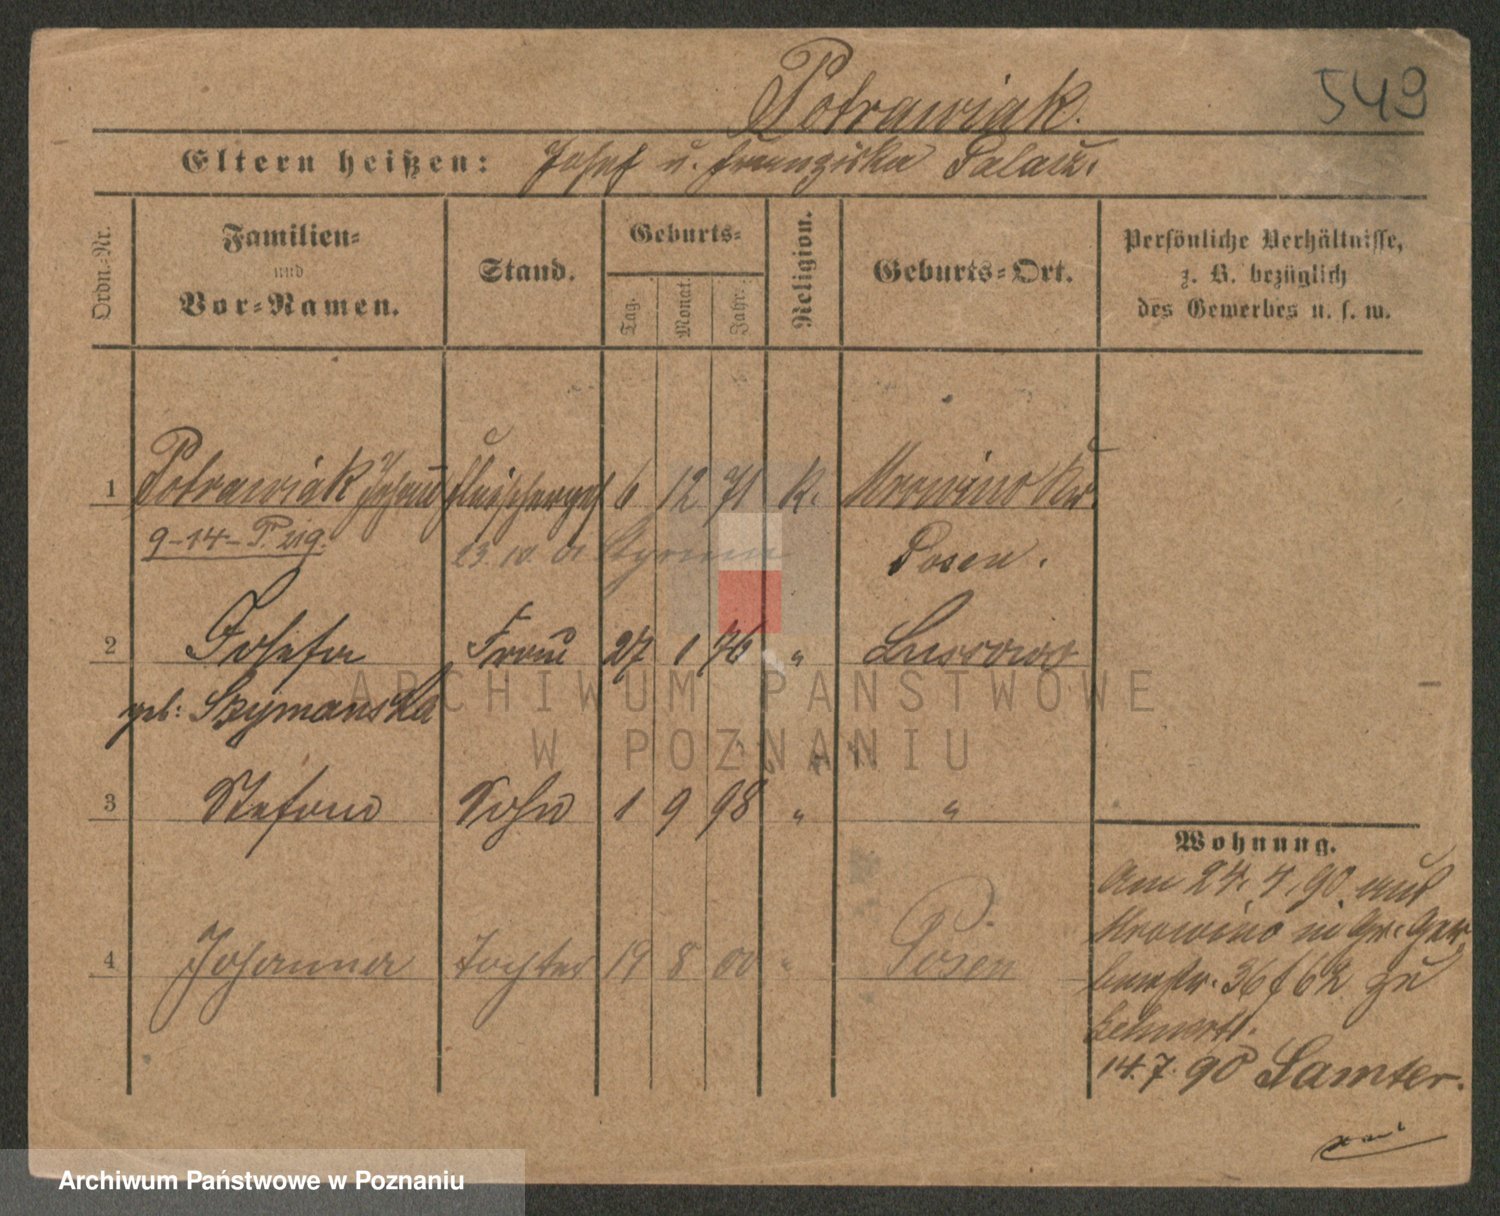 549
Potrawiak.
Eltern heißen: Josef u. Franziska Palacz.
Ordn.-Nr.
Familien- und Vor-Namen.
Stand.
Geburts-
Tag. Monat. Jahr.
Religion.
Geburts-Ort.
Persönliche Verhältnisse,
z. B. bezüglich
des Gewerbes u. s. w.
1 Potrawiak Johann Fleischerges 6 12 71 K. Mrowino Kr.
9-14- P. 219. 23. 10. 01 Posen.
2 Josefa Frau 27 1 76 " Lussowo
geb: Szymanska
3 Stefan Sohn 1 9 98 " "
4 Johanna Tochter 19 8 00 " Posen
Wohnung.
Am 24. 4. 90 aus
Mrowino in Gr. Ger
berstr. 36 f 62 zu
14. 7. 90 Samter.
ARCHIWUM PAŃSTWOWE
W POZNANIU
Archiwum Państwowe w Poznaniu